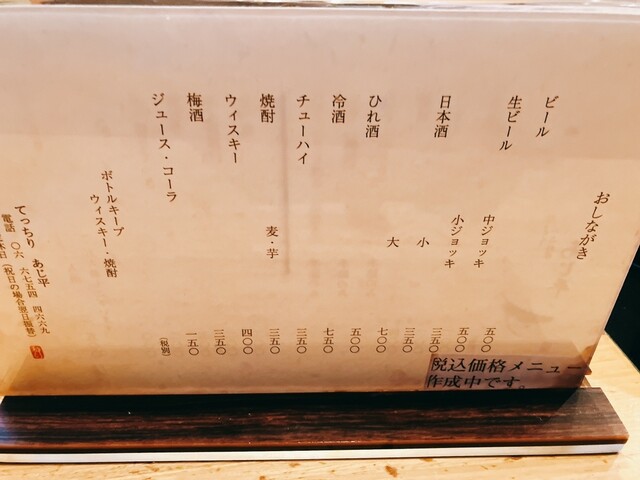 おしながき
ビール 五〇〇
生ビール 中ジョッキ 五〇〇
小ジョッキ 三五〇
日本酒 小 三五〇
大 七〇〇
ひれ酒 五〇〇
冷酒 七五〇
チューハイ 三五〇
焼酎 麦・芋 三五〇
ウィスキー 四〇〇
梅酒 三五〇
ジュース・コーラ 一五〇
(税別)
ボトルキープ
ウィスキー・焼酎
てっちり あじ平
電話 〇六 六七五四 四六六九
休日(祝日の場合翌日振替)
税込価格メニュー
作成中です。